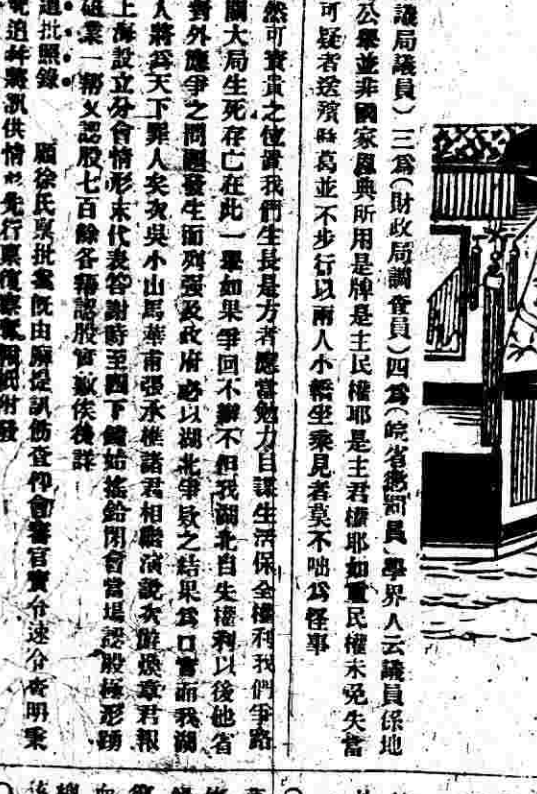 議局議員)三爲(財政局調查員)四爲(皖省衡罰員)學界人云議員係地
公舉並非國家恩典所用是牌是主民權耶是主君權耶如重民權未免失當
可疑者送殯時葛並不步行以兩人小轎坐乘見者莫不咄爲怪事
然可寶貴之位置我們生長是方者應當勉力自謀生活保全權利我們爭路
關大局生死存亡在此一舉如果爭回不辦不但我湖北自失權利以後他省
對外應爭之問題發生而列强及政府必以湖北爭款之結果爲口實而我湖
人將爲天下罪人矣次吳小山馬華甫張永樵諸君相繼演說次游煥章君報
上海設立分會情形末代表答謝時至四下鐘始搖鈴閉會當場認股極形踴
業一幫又認股七百餘各種認股實數俟後詳
道批照錄 顧徐氏稟批案既由廨提訊飭查仰會審官實分速分查明稟
訊供情形先行稟復察奪